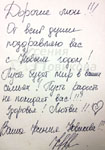 Дорогие мои !!!
От всей души
поздравляю вас
с Новым годом!
Пусть будет мир в ваших
семьях! Пусть радость
не покидает вас!
Здоровья! Любви!
Ваша Ксения